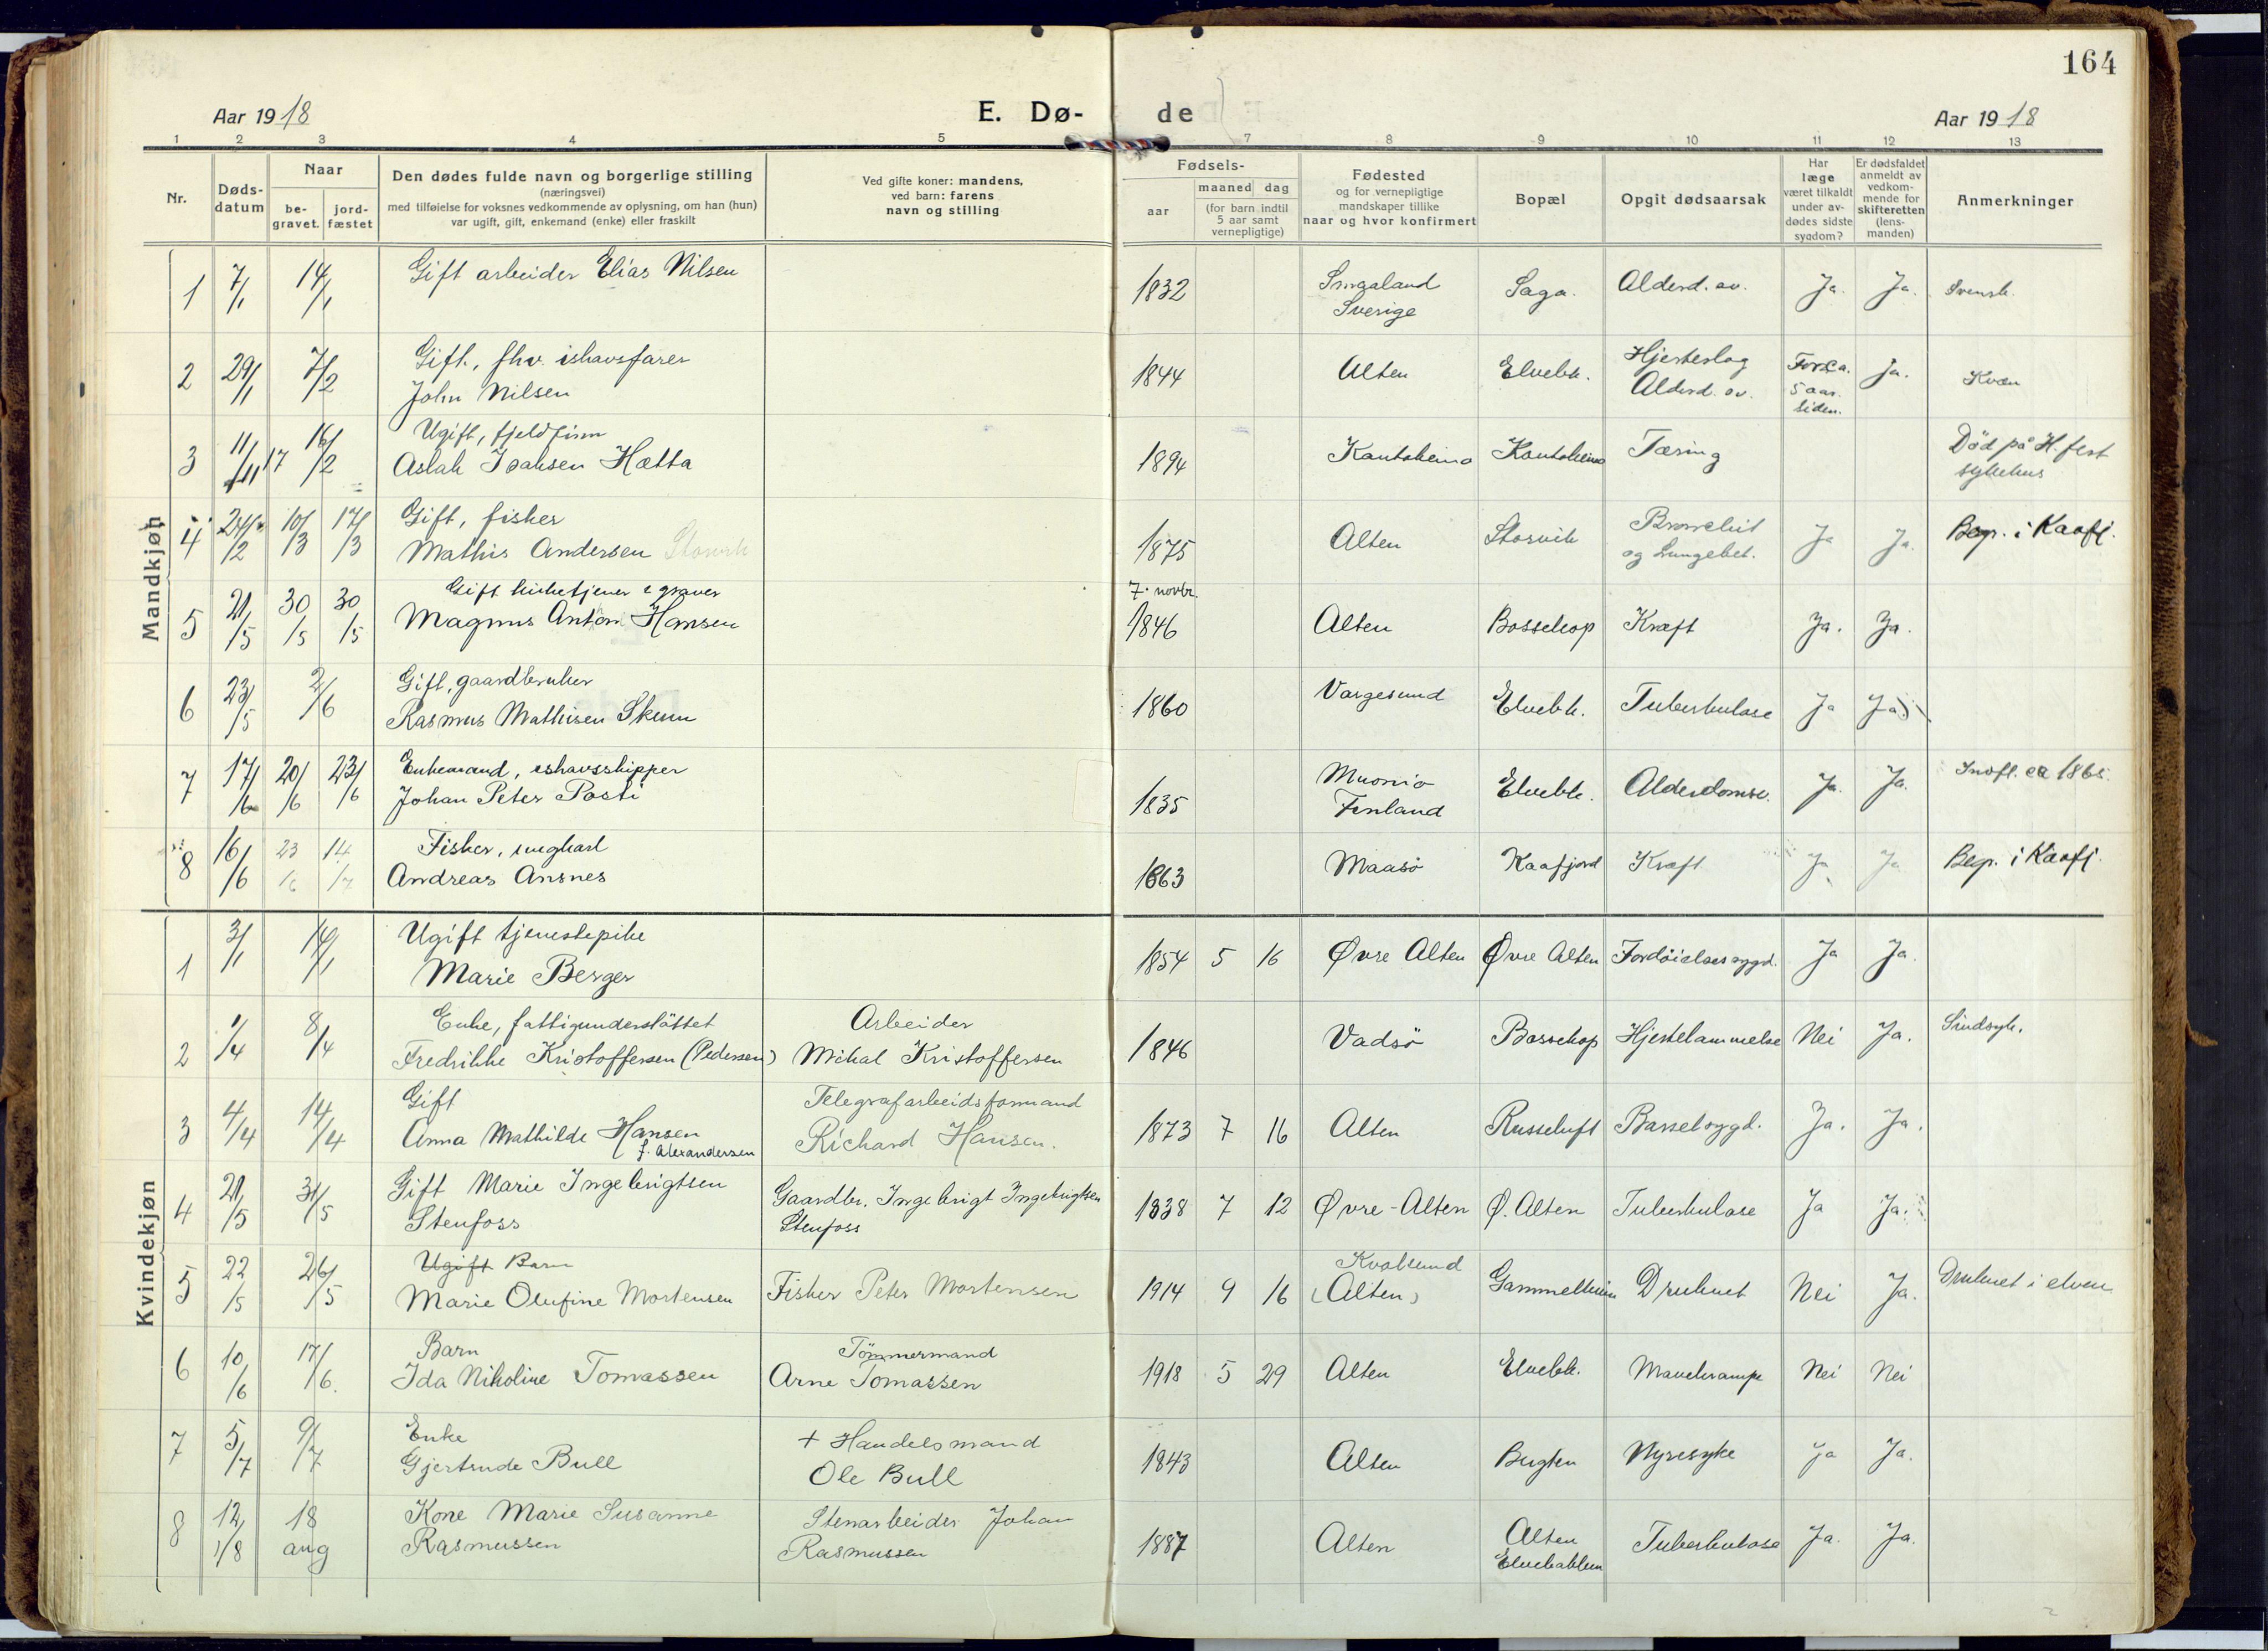 164
Aar 1918
E. Dø-
de
Aar 1918
1 2 3 4 5 7 8 9 10 11 12 13
Nr.
Døds-
datum
Naar
be-
gravet.
jord-
fæstet
Den dødes fulde navn og borgerlige stilling
(næringsvei)
med tilføielse for voksnes vedkommende av oplysning, om han (hun)
var ugift, gift, enkemand (enke) eller fraskilt
Ved gifte koner: mandens,
ved barn: farens
navn og stilling
Fødsels-
aar
maaned dag
(for barn indtil
5 aar samt
vernepligtige)
Fødested
og for vernepligtige
mandskaper tillike
naar og hvor konfirmert
Bopæl
Opgit dødsaarsak
Har
læge
været tilkaldt
under av-
dødes sidste
sygdom?
Er dødsfaldet
anmeldt av
vedkom-
mende for
skifteretten
(lens-
manden)
Anmerkninger
Mandkjøn
1 7/1 14/1 Gift arbeider Elias Nilsen 1832 Smaaland Sverige Saga. Alderd. sv. Ja. Ja. Svensk.
2 29/1 7/2 Gift, fhv. ishavsfarer
John Nilsen 1844 Alten Elvebk. Hjerteslag Alderd. sv. For ca. 5 aar. siden. Ja. Kvæn
3 11/11 17 16/2 Ugift, fjeldfinn
Aslak Isaksen Hætta 1894 Kautokeino Kautokeino Tæring Död på H.fest sykehus
4 24/2 10/3 17/3 Gift, fisker
Mathis Andersen Storvik 1875 Alten Storvik og Lungebet. Ja Ja. Begr. i Kaafj.
5 21/5 30/5 30/5 Gift kirketjener & graver
Magnus Anton Hansen 7. novbr. 1846 Alten Bossekop Kræft Ja. Ja.
6 23/5 2/6 Gift, gaardbruker
Rasmus Mathisen Skum 1860 Vargesund Elvebk. Tuberkulose Ja Ja
7 17/6 20/6 23/6 Enkemand, ishavsskipper
Johan Peter Posti 1835 Muonio Finland Elvebk. Alderdomsv. Ja. Ja. Indfl. ca 1865.
8 16/6 23/6 14/7 Fisker, ungkarl
Andreas Ansnes 1863 Maasö Kaafjord Kræft Ja Ja Begr. i Kaafj.
Kvindekjøn
1 3/1 14/1 Ugift tjenestepike
Marie Berger 1854 5 16 Øvre Alten Øvre Alten Fordöielsessygd. Ja Ja.
2 1/4 8/4 Enke, fattigunderstöttet
Fredrikke Kristoffersen (Pedersen) Arbeider Mikal Kristoffersen 1846 Vadsö Bossekop Hjertelammelse Nei Ja. Sindsyk.
3 4/4 14/4 Gift
Anna Mathilde Hansen
f. Alexandersen Telegrafarbeidsformand Richard Hansen. 1873 7 16 Alten Russeluft Barselsygd. Ja. Ja.
4 21/5 31/5 Gift Marie Ingebrigtsen
Stenfoss Gaardbr. Ingebrigt Ingebrigtsen Stenfoss 1838 7 12 Øvre-Alten Ø. Alten Tuberkulose Ja Ja.
5 22/5 26/5 Ugift Barn
Marie Olufine Mortensen Fisker Peter Mortensen 1914 9 16 Kvalsund (Alten) Druknet Nei Ja. Druknet i elven
6 10/6 17/6. Barn
Ida Nikoline Tomassen Tömmermand Arne Tomassen 1918 5 29 Alten Elvebk. Mavekrampe Nei Nei
7 5/7 9/7 Enke
Gjertrude Bull + Handelsmand Ole Bull 1843 Alten Bugten Nyresyke Ja Ja.
8 12/8 18 aug Kone Marie Susanne
Rasmussen Stenarbeider Johan Rasmussen 1887 Alten Alten Elvebakken Tuberkulose Ja. Ja.